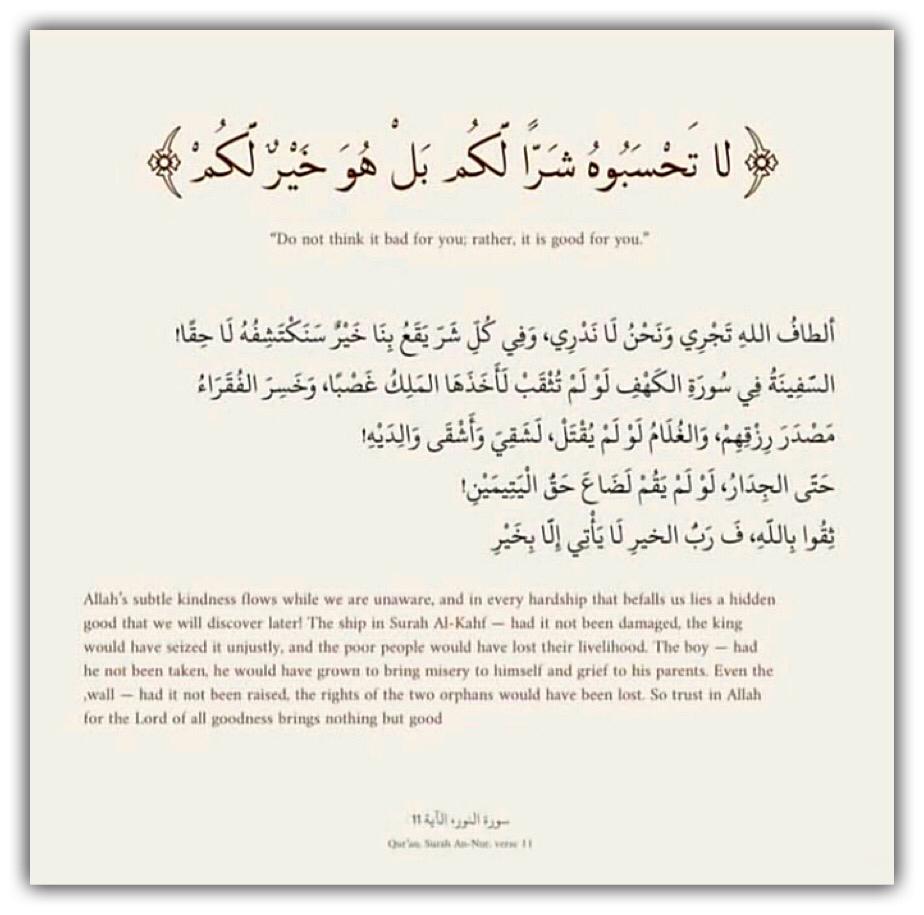 ﴿ لا تَحْسَبُوهُ شَرًّا لَّكُم بَلْ هُوَ خَيْرٌ لَّكُمْ ﴾
"Do not think it bad for you; rather, it is good for you."
ألطافُ اللهِ تَجْرِي وَنَحْنُ لَا نَدْرِي، وَفِي كُلِّ شَرّ يَقَعُ بِنَا خَيْرٌ سَنَكْتَشِفُهُ لَا حِقًا!
السّفِينَةُ فِي سُورَةِ الكَهْفِ لَوْ لَمْ تُثْقَبْ لَأَخَذَهَا المَلِكُ غَصْبًا، وَخَسِرَ الفُقَرَاءُ
مَصْدَرَ رِزْقِهِمْ، وَالغُلَامُ لَوْ لَمْ يُقْتَلْ، لَشَقِيَ وَأَشْقَى وَالِدَيْهِ!
حَتّى الجِدَارُ، لَوْ لَمْ يَقُمْ لَضَاعَ حَقُّ الْيَتِيمَيْنِ!
ثِقُوا بِاللّهِ، فَ رَبُّ الخيرِ لَا يَأْتِي إِلّا بِخَيْرِ
Allah's subtle kindness flows while we are unaware, and in every hardship that befalls us lies a hidden
good that we will discover later! The ship in Surah Al-Kahf — had it not been damaged, the king
would have seized it unjustly, and the poor people would have lost their livelihood. The boy — had
he not been taken, he would have grown to bring misery to himself and grief to his parents. Even the
,wall — had it not been raised, the rights of the two orphans would have been lost. So trust in Allah
for the Lord of all goodness brings nothing but good
سورة النور، الآية 11
Qur'an, Surah An-Nur, verse 11